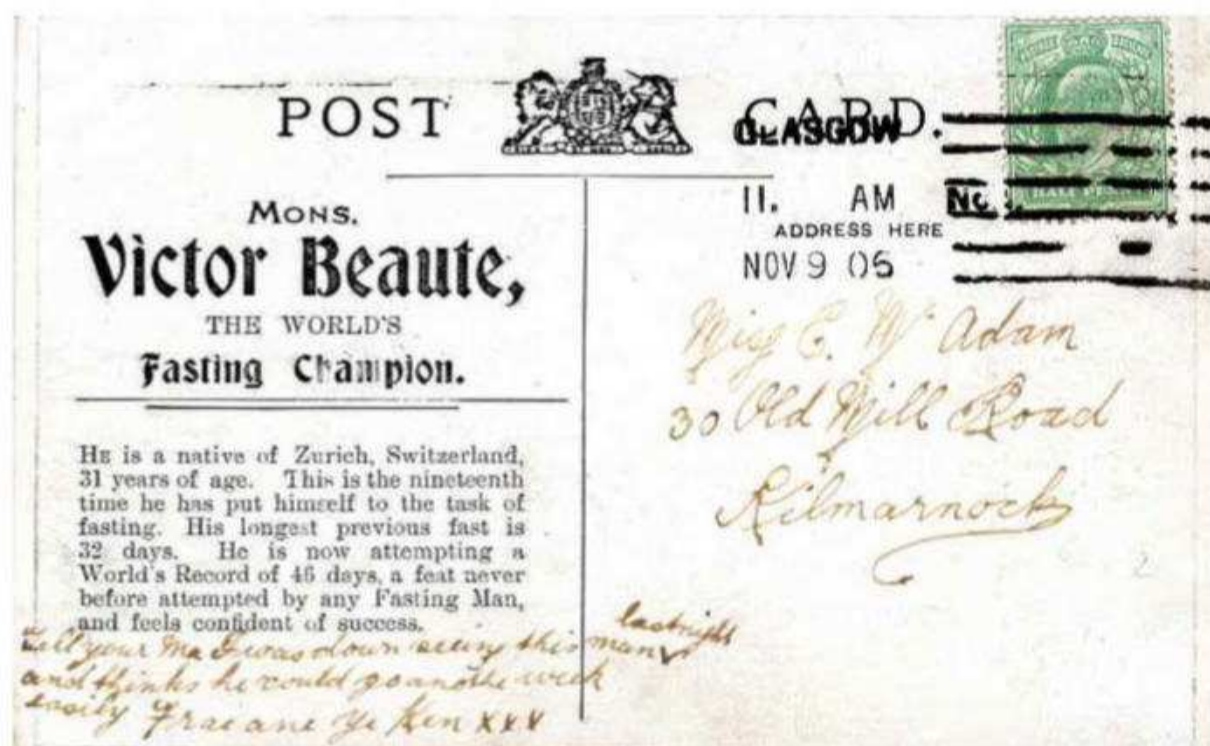 POST CARD.
GLASGOW
11. AM
ADDRESS HERE
NOV 9 05
MONS.
Victor Beaute,
THE WORLD'S
Fasting Champion.
HE is a native of Zurich, Switzerland,
31 years of age. This is the nineteenth
time he has put himself to the task of
fasting. His longest previous fast is
32 days. He is now attempting a
World's Record of 46 days, a feat never
before attempted by any Fasting Man,
and feels confident of success.
Tell your Ma I was down seeing this man last night
and thinks he could go another week
easily Frae ane ye Ken xxx
Miss C. Mc Adam
30 Old Mill Road
Kilmarnock